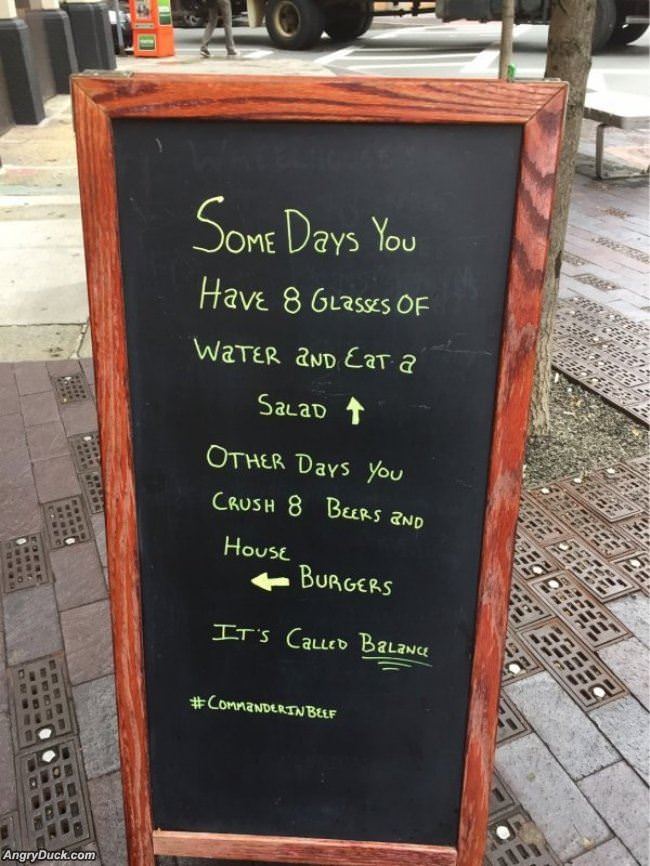 Some Days You
Have 8 Glasses of
Water and Eat a
Salad ↑
Other Days You
Crush 8 Beers and
House
← Burgers
It's Called Balance
#CommanderInBeef
AngryDuck.com